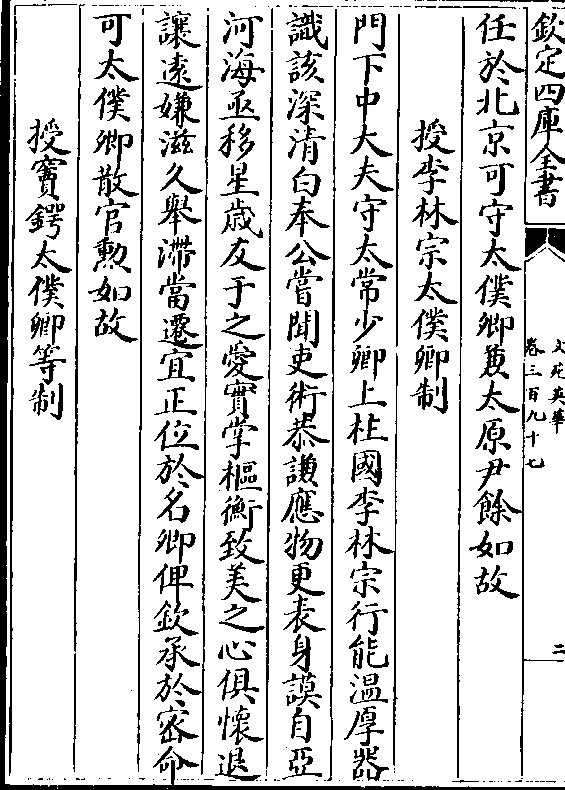 欽定四庫全書
文苑英華
卷三百九十七
二
任於北京可守太僕卿兼太原尹餘如故
授李林宗太僕卿制
門下中大夫守太常少卿上柱國李林宗行能温厚器
識該深清白奉公嘗聞吏術恭謙應物更表身謨自亞
河海亟移星歲友于之愛實掌樞衡致美之心俱懷退
讓逺嫌滋久舉滯當遷宜正位於名卿俾欽承於密命
可太僕卿散官勲如故
授竇鍔太僕卿等制